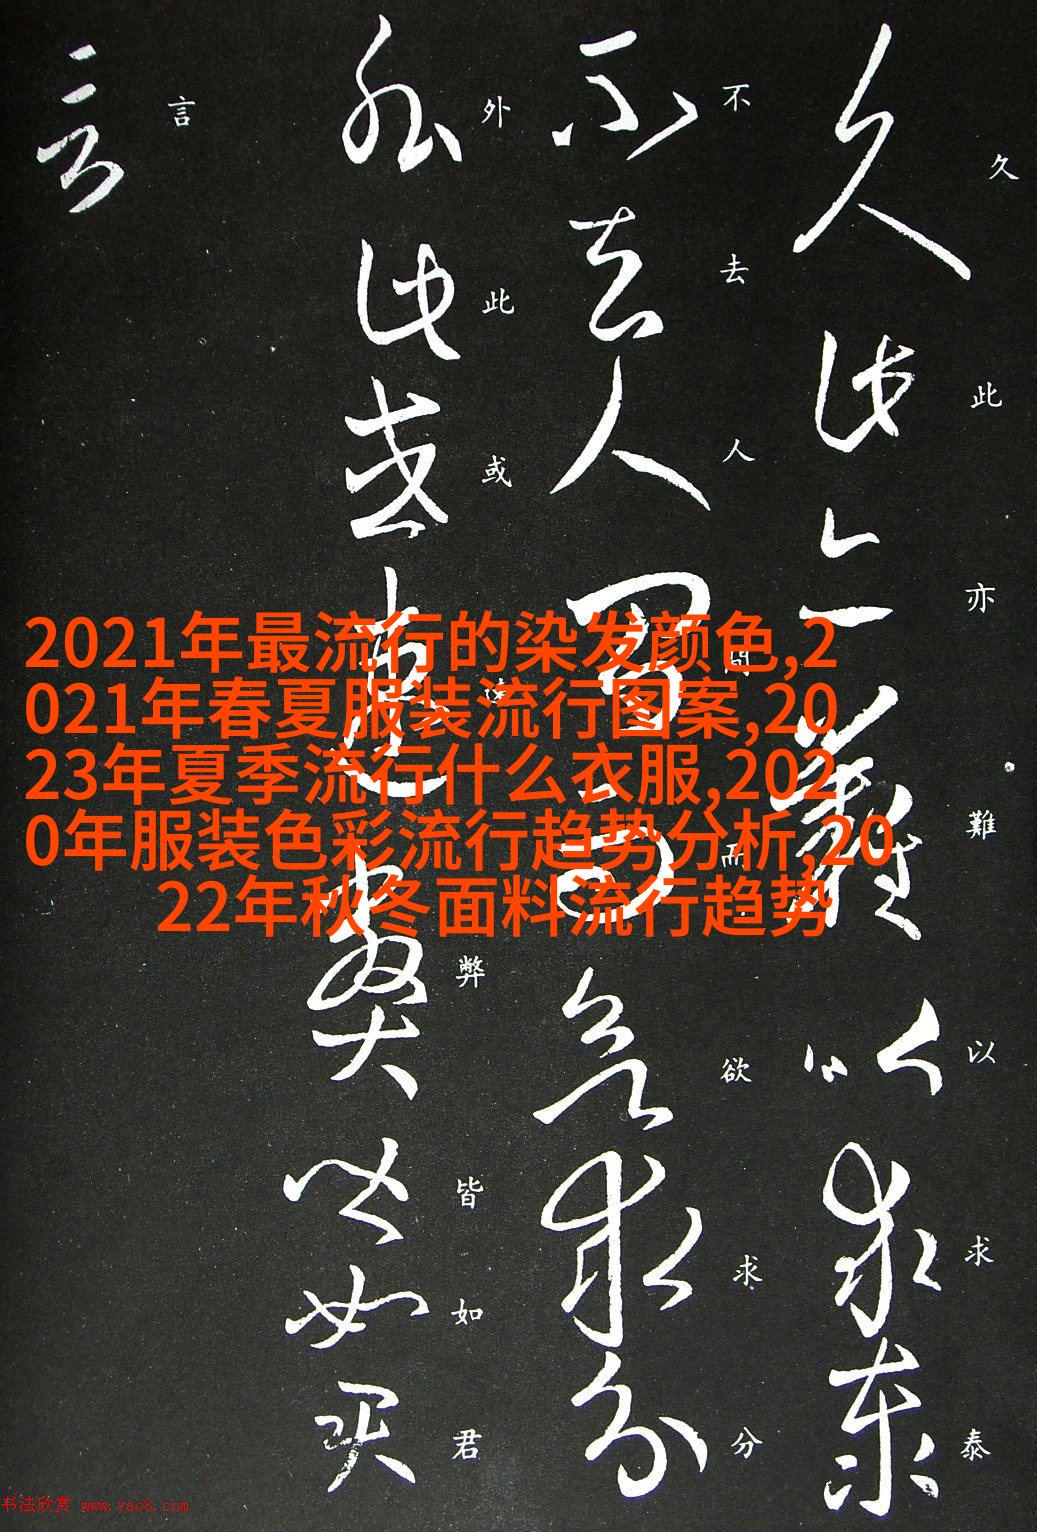 久此亦難以求泰
久此亦難以求泰
不去人間而欲求分
不去人間而欲求分
外此或弊皆如君
外此或弊皆如君
言
言
2021年最流行的染发颜色,2
021年春夏服装流行图案,20
23年夏季流行什么衣服,202
0年服装色彩流行趋势分析,20
22年秋冬面料流行趋势
书法欣赏 www.yac8.com